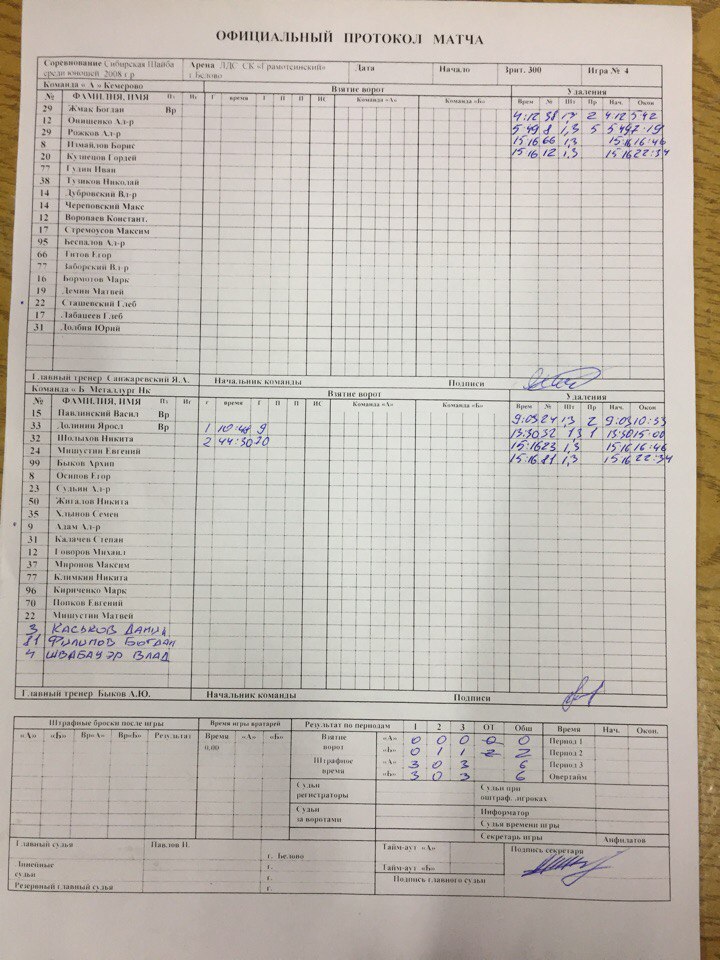 ОФИЦИАЛЬНЫЙ ПРОТОКОЛ МАТЧА
Соревнование Сибирская Шайба среди юношей 2008 г.р Арена ЛДС СК «Грамотеинский» г Белово Дата Начало Зрит. 300 Игра № 4
Команда « А » Кемерово Взятие ворот Удаления
№ ФАМИЛИЯ, ИМЯ Пз Иг Г время Г П П ИС Команда «А» Команда «Б» Врем № Шт Пр Нач. Окон
29 Жмак Богдан Вр 4:12 38 13 2 4:12 5 42
12 Онищенко Ал-р 5 49 8 1,3 5 5 49 7:19
29 Рожков Ал-р 15 16 66 1,3 15 16 16:46
8 Измайлов Борис 15 16 12 1,3 15 16 22:34
20 Кузнецов Гордей
77 Гудин Иван
38 Тузиков Николай
14 Дубровский Вл-р
14 Череповский Макс
12 Воропаев Констант.
17 Стремоусов Максим
95 Беспалов Ал-р
66 Титов Егор
77 Заборский Вл-р
16 Бормотов Марк
19 Демин Матвей
22 Сташевский Глеб
17 Лабацеев Глеб
31 Долбня Юрий
Главный тренер Санжаревский Я.А. Начальник команды Подписи
Команда « Б Металлург Нк Взятие ворот Удаления
№ ФАМИЛИЯ, ИМЯ Пз Иг г время Г П П ИС Команда «А» Команда «Б» Врем № Шт Пр Нач. Окон
15 Павлинский Васил Вр 9:03 24 13 2 9:03 10:33
33 Долинин Яросл Вр 1 9 13:30 32 13 1 13:30 15:00
32 Шолыхов Никита 2 44:30 20 15:16 23 1.3 15 16 16:46
24 Мишустин Евгений 15:16 81 1,3 15 16 22:34
99 Быков Архип
8 Осипов Егор
23 Судьин Ал-р
50 Жигалов Никита
35 Хлынов Семен
9 Адам Ал-р
31 Калачев Степан
12 Говоров Михаил
37 Миронов Максим
77 Климкин Никита
96 Кириченко Марк
70 Попков Евгений
22 Мишустин Матвей
3 КАСЬКОВ ДАНИЛ
81 ФИЛИПОВ БОГДАН
4 ШВАБАУЭР ВЛАД
Главный тренер Быков А.Ю. Начальник команды Подписи
Штрафные броски после игры Время игры вратарей Результат по периодам 1 2 3 ОТ Общ Время Нач. Окон.
«А» «Б» Вр«А» Вр«Б» Результат Время «А» «Б» Взятие ворот «А» 0 0 0 0 0 Период 1
0,00 «Б» 0 1 1 2 2 Период 2
Штрафное время «А» 3 0 3 6 Период 3
«Б» 3 0 3 6 Овертайм
Судьи регистраторы Судьи при оштраф. игроках
Судьи за воротами Информатор
Судья времени игры
Секретарь игры Анфилатов
Главный судья Павлов Н. Тайм-аут «А» Подпись секретаря
Линейные судьи г. Белово
г. Тайм-аут «Б»
Резервный главный судья г. Подпись главного судьи